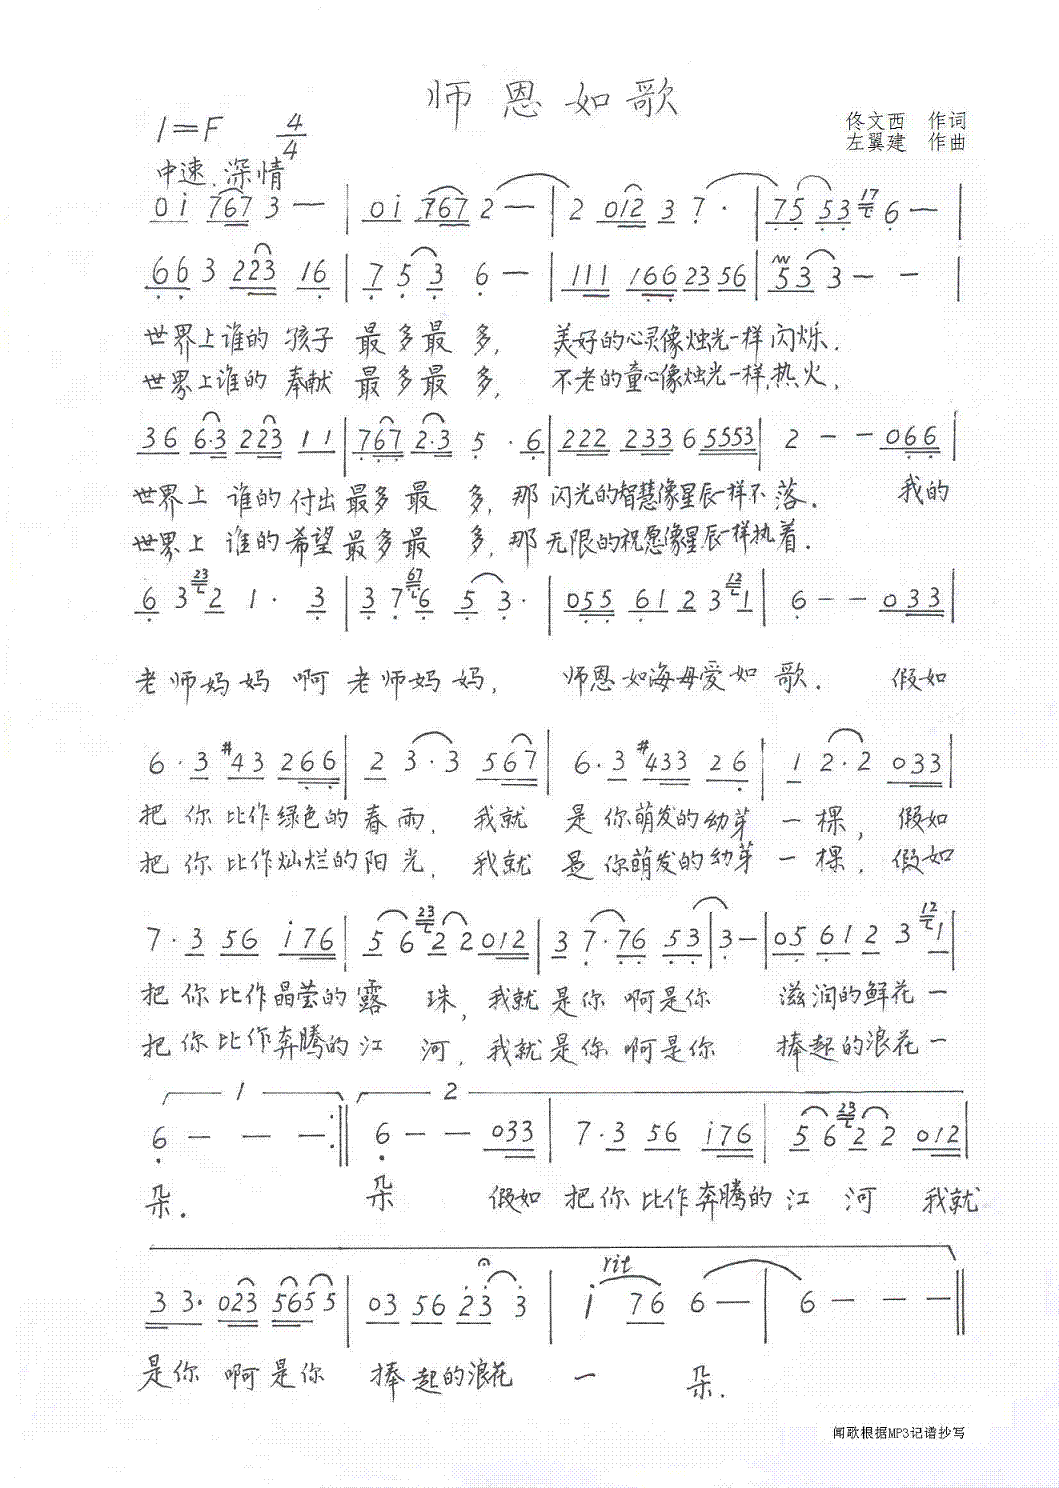 师恩如歌
1=F 4/4
佟文西 作词
左翼建 作曲
中速.深情
0i 767 3 — | 0i 767 2 — | 2 012 3 7 · | 75 53 17 6 — |
663 223 16 | 7 5 3 6 — | 111 166 23 56 | 53 3 — — |
世界上谁的 孩子 最多最多, 美好的心灵像烛光一样闪烁.
世界上谁的 奉献 最多最多, 不老的童心像烛光一样,热火,
36 6·3 223 11 | 767 2·3 5 · 6 | 222 233 6 5553 | 2 — — 066 |
世界上 谁的付出最多最 多,那 闪光的智慧像星辰一样不落. 我的
世界上 谁的希望最多最 多,那 无限的祝愿像星辰一样执着.
6 3 23 2 1 · 3 | 3 7 67 6 5 3 · | 055 612 3 12 1 | 6 — — 033 |
老师妈妈 啊 老师妈妈, 师恩如海母爱如 歌. 假如
6·3 #43 266 | 2 3·3 567 | 6·3 #433 26 | 1 2·2 033 |
把你比作绿色的春雨, 我就 是你萌发的幼芽一棵, 假如
把你比作灿烂的阳光, 我就 是你萌发的幼芽一棵, 假如
7·3 56 i76 | 5 6 23 2 2 012 | 3 7·76 53 | 3 — | 05 612 3 12 1 |
把你比作晶莹的露 珠,我就是你 啊是你 滋润的鲜花一
把你比作奔腾的江 河,我就是你 啊是你 捧起的浪花一
1 2
6 — — — :‖ 6 — — 033 | 7·3 56 i76 | 5 6 23 2 2 012 |
朵. 朵 假如 把你比作奔腾的江 河 我就
rit
3 3· 023 5655 | 03 56 23 3 | i 76 6 — | 6 — — — ‖
是你 啊是你 捧起的浪花 一 朵.
闻歌根据MP3记谱抄写